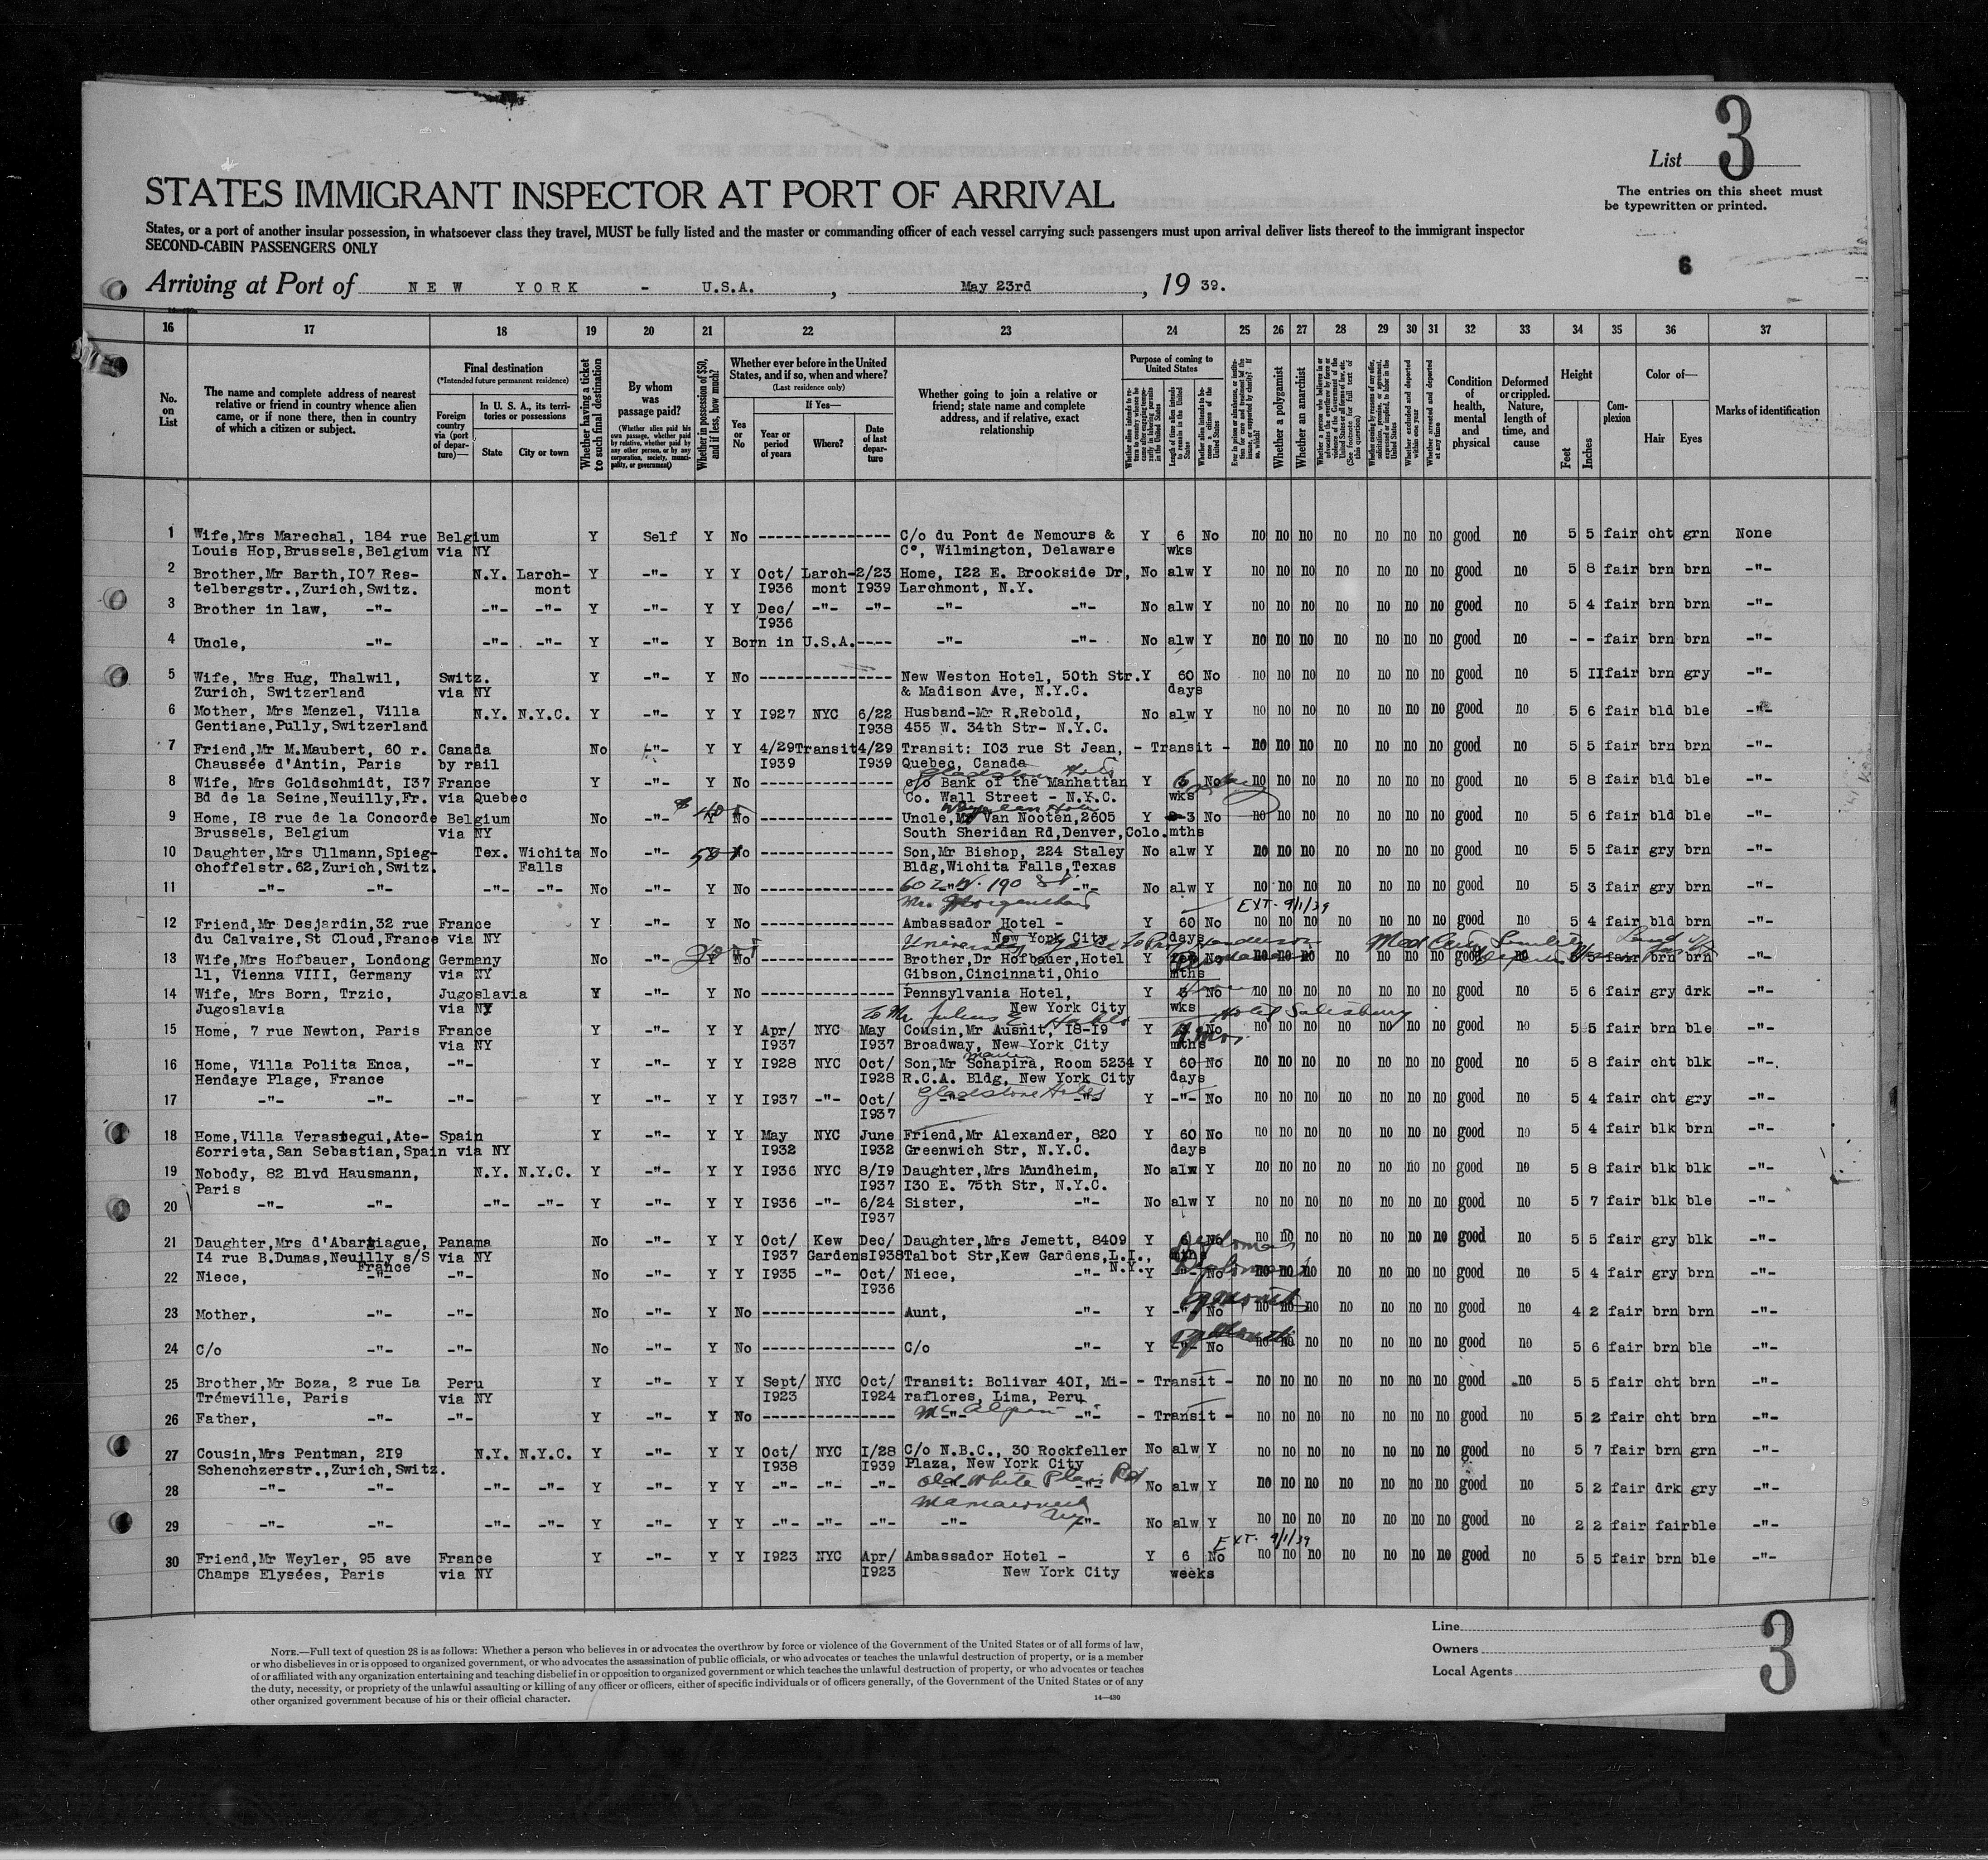 List 3
The entries on this sheet must
be typewritten or printed.
STATES IMMIGRANT INSPECTOR AT PORT OF ARRIVAL
States, or a port of another insular possession, in whatsoever class they travel, MUST be fully listed and the master or commanding officer of each vessel carrying such passengers must upon arrival deliver lists thereof to the immigrant inspector
SECOND-CABIN PASSENGERS ONLY
6
Arriving at Port of NEW YORK - U.S.A. , May 23rd , 19 39.
16 17 18 19 20 21 22 23 24 25 26 27 28 29 30 31 32 33 34 35 36 37
No. on List
The name and complete address of nearest relative or friend in country whence alien came, or if none there, then in country of which a citizen or subject.
Final destination
(*Intended future permanent residence)
Foreign country via (port of departure)—
In U. S. A., its territories or possessions
State
City or town
Whether having a ticket to such final destination
By whom was passage paid?
(Whether alien paid his own passage, whether paid by relative, whether paid by any other person, or by any corporation, society, municipality, or government)
Whether in possession of $50, and if less, how much?
Whether ever before in the United States, and if so, when and where?
(Last residence only)
Yes or No
If Yes—
Year or period of years
Where?
Date of last departure
Whether going to join a relative or friend; state name and complete address, and if relative, exact relationship
Purpose of coming to United States
Length of time alien intends to remain in the United States
Whether alien intends to become a citizen of the United States
Whether a polygamist
Whether an anarchist
Whether excluded and deported within one year
Whether arrested and deported at any time
Condition of health, mental and physical
Deformed or crippled. Nature, length of time, and cause
Height
Feet
Inches
Complexion
Color of—
Hair
Eyes
Marks of identification
1 Wife,Mrs Marechal, 184 rue Belgium Y Self Y No ---------------- C/o du Pont de Nemours & Y 6 No no no no no no no no good no 5 5 fair cht grn None
Louis Hop,Brussels,Belgium via NY C°, Wilmington, Delaware wks
2 Brother,Mr Barth,I07 Res- N.Y. Larch- Y -"- Y Y Oct/ Larch- 2/23 Home, I22 E. Brookside Dr, No alw Y no no no no no no no good no 5 8 fair brn brn -"-
telbergstr.,Zurich,Switz. mont I936 mont I939 Larchmont, N.Y.
3 Brother in law, -"- -"- -"- Y -"- Y Y Dec/ -"- -"- -"- -"- No alw Y no no no no no no no good no 5 4 fair brn brn -"-
I936
4 Uncle, -"- -"- -"- Y -"- Y Born in U.S.A.---- -"- -"- No alw Y no no no no no no no good no - - fair brn brn -"-
5 Wife, Mrs Hug, Thalwil, Switz. Y -"- Y No ---------------- New Weston Hotel, 50th Str. Y 60 No no no no no no no no good no 5 II fair brn gry -"-
Zurich, Switzerland via NY & Madison Ave, N.Y.C. days
6 Mother, Mrs Menzel, Villa N.Y. N.Y.C. Y -"- Y Y I927 NYC 6/22 Husband-Mr R.Rebold, No alw Y no no no no no no no good no 5 6 fair bld ble -"-
Gentiane,Pully,Switzerland I938 455 W. 34th Str- N.Y.C.
7 Friend,Mr M.Maubert, 60 r. Canada No -"- Y Y 4/29 Transit 4/29 Transit: I03 rue St Jean, - Transit - no no no no no no no good no 5 5 fair brn brn -"-
Chaussée d'Antin, Paris by rail I939 I939 Quebec, Canada
8 Wife, Mrs Goldschmidt, I37 France Y -"- Y No ---------------- c/o Bank of the Manhattan Y 6 No no no no no no no no good no 5 8 fair bld ble -"-
Bd de la Seine,Neuilly,Fr. via Quebec Co. Wall Street - N.Y.C. wks
9 Home, I8 rue de la Concorde Belgium No -"- Y No ---------------- Uncle,Mr Van Nooten,2605 Y 3 No no no no no no no no good no 5 6 fair bld ble -"-
Brussels, Belgium via NY South Sheridan Rd,Denver,Colo. mths
10 Daughter,Mrs Ullmann,Spieg- Tex. Wichita No -"- 50 No ---------------- Son,Mr Bishop, 224 Staley No alw Y no no no no no no no good no 5 5 fair gry brn -"-
choffelstr.62,Zurich,Switz. Falls Bldg,Wichita Falls,Texas
11 -"- -"- -"- -"- No -"- Y No ---------------- -"- -"- No alw Y no no no no no no no good no 5 3 fair gry brn -"-
602 W. 190 St
Mrs Morgenthau
EXT. 9/1/39
12 Friend,Mr Desjardin,32 rue France Y -"- Y No ---------------- Ambassador Hotel - Y 60 No no no no no no no no good no 5 4 fair bld brn -"-
du Calvaire,St Cloud,France via NY New York City days
13 Wife,Mrs Hofbauer, Londong Germany No -"- Y No ---------------- Brother,Dr Hofbauer,Hotel Y No no no no no no no no good no 5 5 fair brn brn -"-
11, Vienna VIII, Germany via NY Gibson,Cincinnati,Ohio mths
14 Wife, Mrs Born, Trzic, Jugoslavia Y -"- Y No ---------------- Pennsylvania Hotel, Y 3 No no no no no no no no good no 5 6 fair gry drk -"-
Jugoslavia via NY New York City wks
Hotel Salisbury
15 Home, 7 rue Newton, Paris France Y -"- Y Y Apr/ NYC May Cousin,Mr Ausnit, I8-I9 Y No no no no no no no no good no 5 5 fair brn ble -"-
via NY I937 I937 Broadway, New York City mths
16 Home, Villa Polita Enca, -"- Y -"- Y Y I928 NYC Oct/ Son,Mr Schapira, Room 5234 Y 60 No no no no no no no no good no 5 8 fair cht blk -"-
Hendaye Plage, France I928 R.C.A. Bldg, New York City days
Gladstone Hotel
17 -"- -"- -"- Y -"- Y Y I937 -"- Oct/ -"- -"- Y -"- No no no no no no no no good no 5 4 fair cht gry -"-
I937
18 Home,Villa Verastegui,Ate- Spain Y -"- Y Y May NYC June Friend,Mr Alexander, 820 Y 60 No no no no no no no no good no 5 4 fair blk brn -"-
gorrieta,San Sebastian,Spain via NY I932 I932 Greenwich Str, N.Y.C. days
19 Nobody, 82 Blvd Hausmann, N.Y. N.Y.C. Y -"- Y Y I936 NYC 8/I9 Daughter,Mrs Mundheim, No alw Y no no no no no no no good no 5 8 fair blk blk -"-
Paris I937 I30 E. 75th Str, N.Y.C.
20 -"- -"- -"- -"- Y -"- Y Y I936 -"- 6/24 Sister, -"- No alw Y no no no no no no no good no 5 7 fair blk ble -"-
I937
21 Daughter,Mrs d'Abartiague, Panama No -"- Y Y Oct/ Kew Dec/ Daughter,Mrs Jemett, 8409 Y 6 No no no no no no no no good no 5 5 fair gry blk -"-
I4 rue B.Dumas,Neuilly s/S via NY I937 Gardens I938 Talbot Str,Kew Gardens,L.I., mths
France N.Y.
22 Niece, -"- -"- No -"- Y Y I935 -"- Oct/ Niece, -"- Y -"- No no no no no no no no good no 5 4 fair gry brn -"-
I936
23 Mother, -"- -"- No -"- Y No ---------------- Aunt, -"- Y -"- No no no no no no no no good no 4 2 fair brn brn -"-
24 C/o -"- -"- No -"- Y No ---------------- C/o -"- Y -"- No no no no no no no no good no 5 6 fair brn ble -"-
25 Brother,Mr Boza, 2 rue La Peru Y -"- Y Y Sept/ NYC Oct/ Transit: Bolivar 40I, Mi- - Transit - no no no no no no no good no 5 5 fair cht brn -"-
Trémeville, Paris via NY I923 I924 raflores, Lima, Peru
26 Father, -"- -"- Y -"- Y No ---------------- -"- -"- - Transit - no no no no no no no good no 5 2 fair cht brn -"-
27 Cousin,Mrs Pentman, 2I9 N.Y. N.Y.C. Y -"- Y Y Oct/ NYC I/28 C/o N.B.C., 30 Rockfeller No alw Y no no no no no no no good no 5 7 fair brn grn -"-
Schenchzerstr.,Zurich,Switz. I938 I939 Plaza, New York City
Old White Plains Rd
28 -"- -"- -"- -"- Y -"- Y Y -"- -"- -"- -"- -"- No alw Y no no no no no no no good no 5 2 fair drk gry -"-
Mamaroneck
29 -"- -"- -"- -"- Y -"- Y Y -"- -"- -"- -"- -"- No alw Y no no no no no no no good no 2 2 fair fair ble -"-
EXT. 9/1/39
30 Friend,Mr Weyler, 95 ave France Y -"- Y Y I923 NYC Apr/ Ambassador Hotel - Y 6 No no no no no no no no good no 5 5 fair brn ble -"-
Champs Elysées, Paris via NY I923 New York City weeks
Line
Owners
Local Agents
3
NOTE.—Full text of question 28 is as follows: Whether a person who believes in or advocates the overthrow by force or violence of the Government of the United States or of all forms of law,
or who disbelieves in or is opposed to organized government, or who advocates the assassination of public officials, or who advocates or teaches the unlawful destruction of property, or is a member
of or affiliated with any organization entertaining and teaching disbelief in or opposition to organized government or which teaches the unlawful destruction of property, or who advocates or teaches
the duty, necessity, or propriety of the unlawful assaulting or killing of any officer or officers, either of specific individuals or of officers generally, of the Government of the United States or of any
other organized government because of his or their official character.
14—430